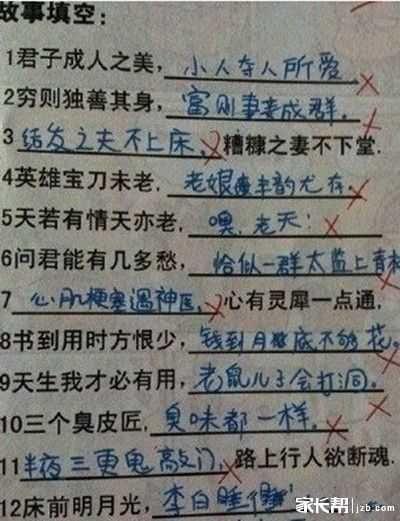 故事填空：
1君子成人之美，小人夺人所爱。
2穷则独善其身，富则妻妾成群。
3结发之夫不上床，糟糠之妻不下堂.
4英雄宝刀未老，老娘丰韵尤存。
5天若有情天亦老，噢，老天！
6问君能有几多愁，恰似一群太监上青
7心肌梗塞遇神医，心有灵犀一点通.
8书到用时方恨少，钱到月底不够花。
9天生我才必有用，老鼠儿子会打洞。
10三个臭皮匠，臭味都一样。
11半夜三更鬼敲门，路上行人欲断魂.
12床前明月光，李白睡
家长帮 jzb.com